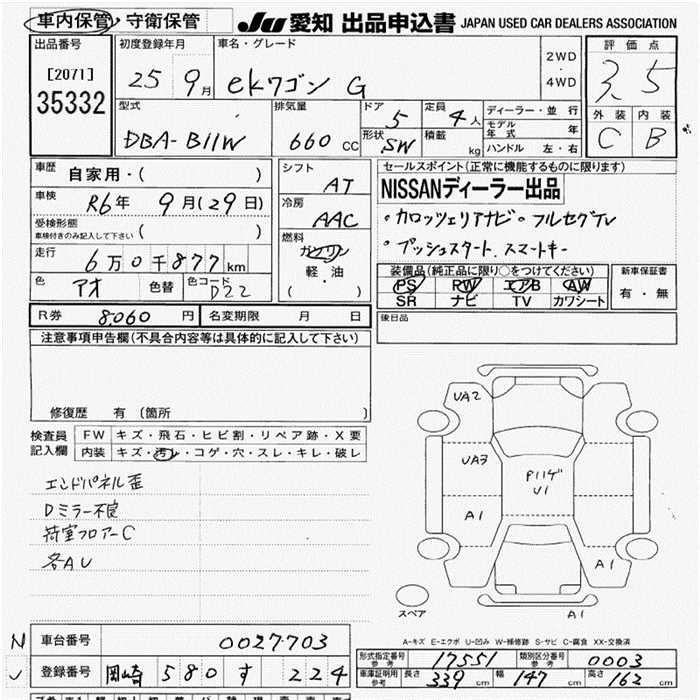 車内保管・守衛保管
JU 愛知 出品申込書 JAPAN USED CAR DEALERS ASSOCIATION
出品番号
[2071]
35332
初度登録年月
25 9月
車名・グレード
ekワゴン G
2WD
・
4WD
評価点
3.5
外装 内装
C B
型式
DBA-B11W
排気量
660 CC
ドア
5
形状
SW
定員
4人
積載
kg
ディーラー・並行
モデル年式 年
ハンドル 左・右
車歴
自家用・( )
車検
R6年 9月(29日)
受検形態
車検付きのみ記入して下さい ( )
走行
6万0千877km
色
アオ
色替
色コード
D22
シフト
AT
冷房
AAC
燃料
ガソリン
軽・油
( )
セールスポイント(正常に機能するものに限ります)
NISSANディーラー出品
・カロッツェリアナビ・フルセグTV
・プッシュスタート.スマートキー
装備品(純正品に限り○をつけてください)
PS PW エアB AW
SR ナビ TV カワシート
新車保証書
有・無
R券 8,060円
名変期限 月 日
後日品
注意事項申告欄(不具合内容等は具体的に記入して下さい)
修復歴 有(箇所 )
検査員記入欄
FW キズ・飛石・ヒビ割・リペア跡・X要
内装 キズ・汚レ・コゲ・穴・スレ・キレ・破レ
エンドパネル歪
Dミラー不良
荷室フロアーC
各AU
UA2
UA3
A1
U1
A1
A1
スペア
A-キズ E-エクボ U-凹み W-補修跡 S-サビ C-腐食 XX-交換済
車台番号
0027703
登録番号
岡崎 580 す 224
形式指定番号
参考
17551
類別区分番号
参考
0003
車庫証明用
参考
長さ 339cm
幅 147cm
高さ 162cm